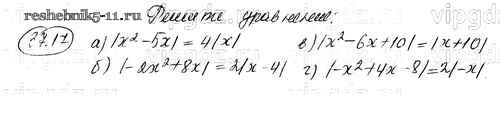 reshebnik5-11.ru Решите уравнения:
27.17 а) |x²-5x| = 4|x| в) |x²-6x+10| = |x+10|
б) |-2x²+8x| = 2|x-4| г) |-x²+4x-8| = 2|-x|